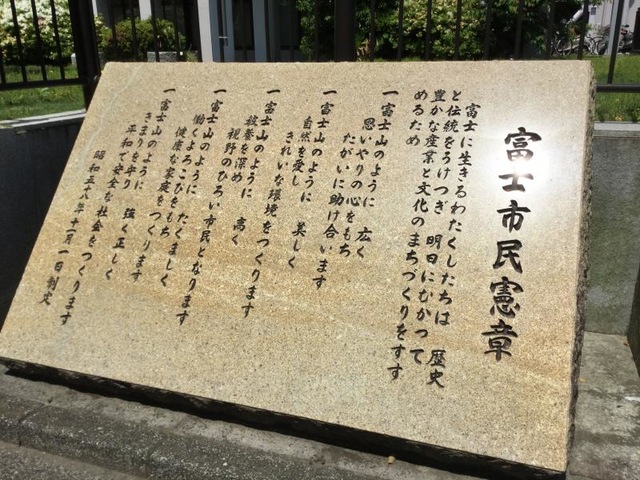 富士市民憲章
富士に生きるわたくしたちは　歴史
と伝統をうけつぎ　明日にむかって
豊かな産業と文化のまちづくりをすす
めるため
一 富士山のように　広く
思いやりの心をもち
たがいに助け合います
一 富士山のように　美しく
自然を愛し
きれいな環境をつくります
一 富士山のように　高く
教養を深め
視野のひろい市民となります
一 富士山のように　たくましく
働くよろこびをもち
健康な家庭をつくります
一 富士山のように　強く正しく
きまりを守り
平和で安全な社会をつくります
昭和五八年十一月一日制定